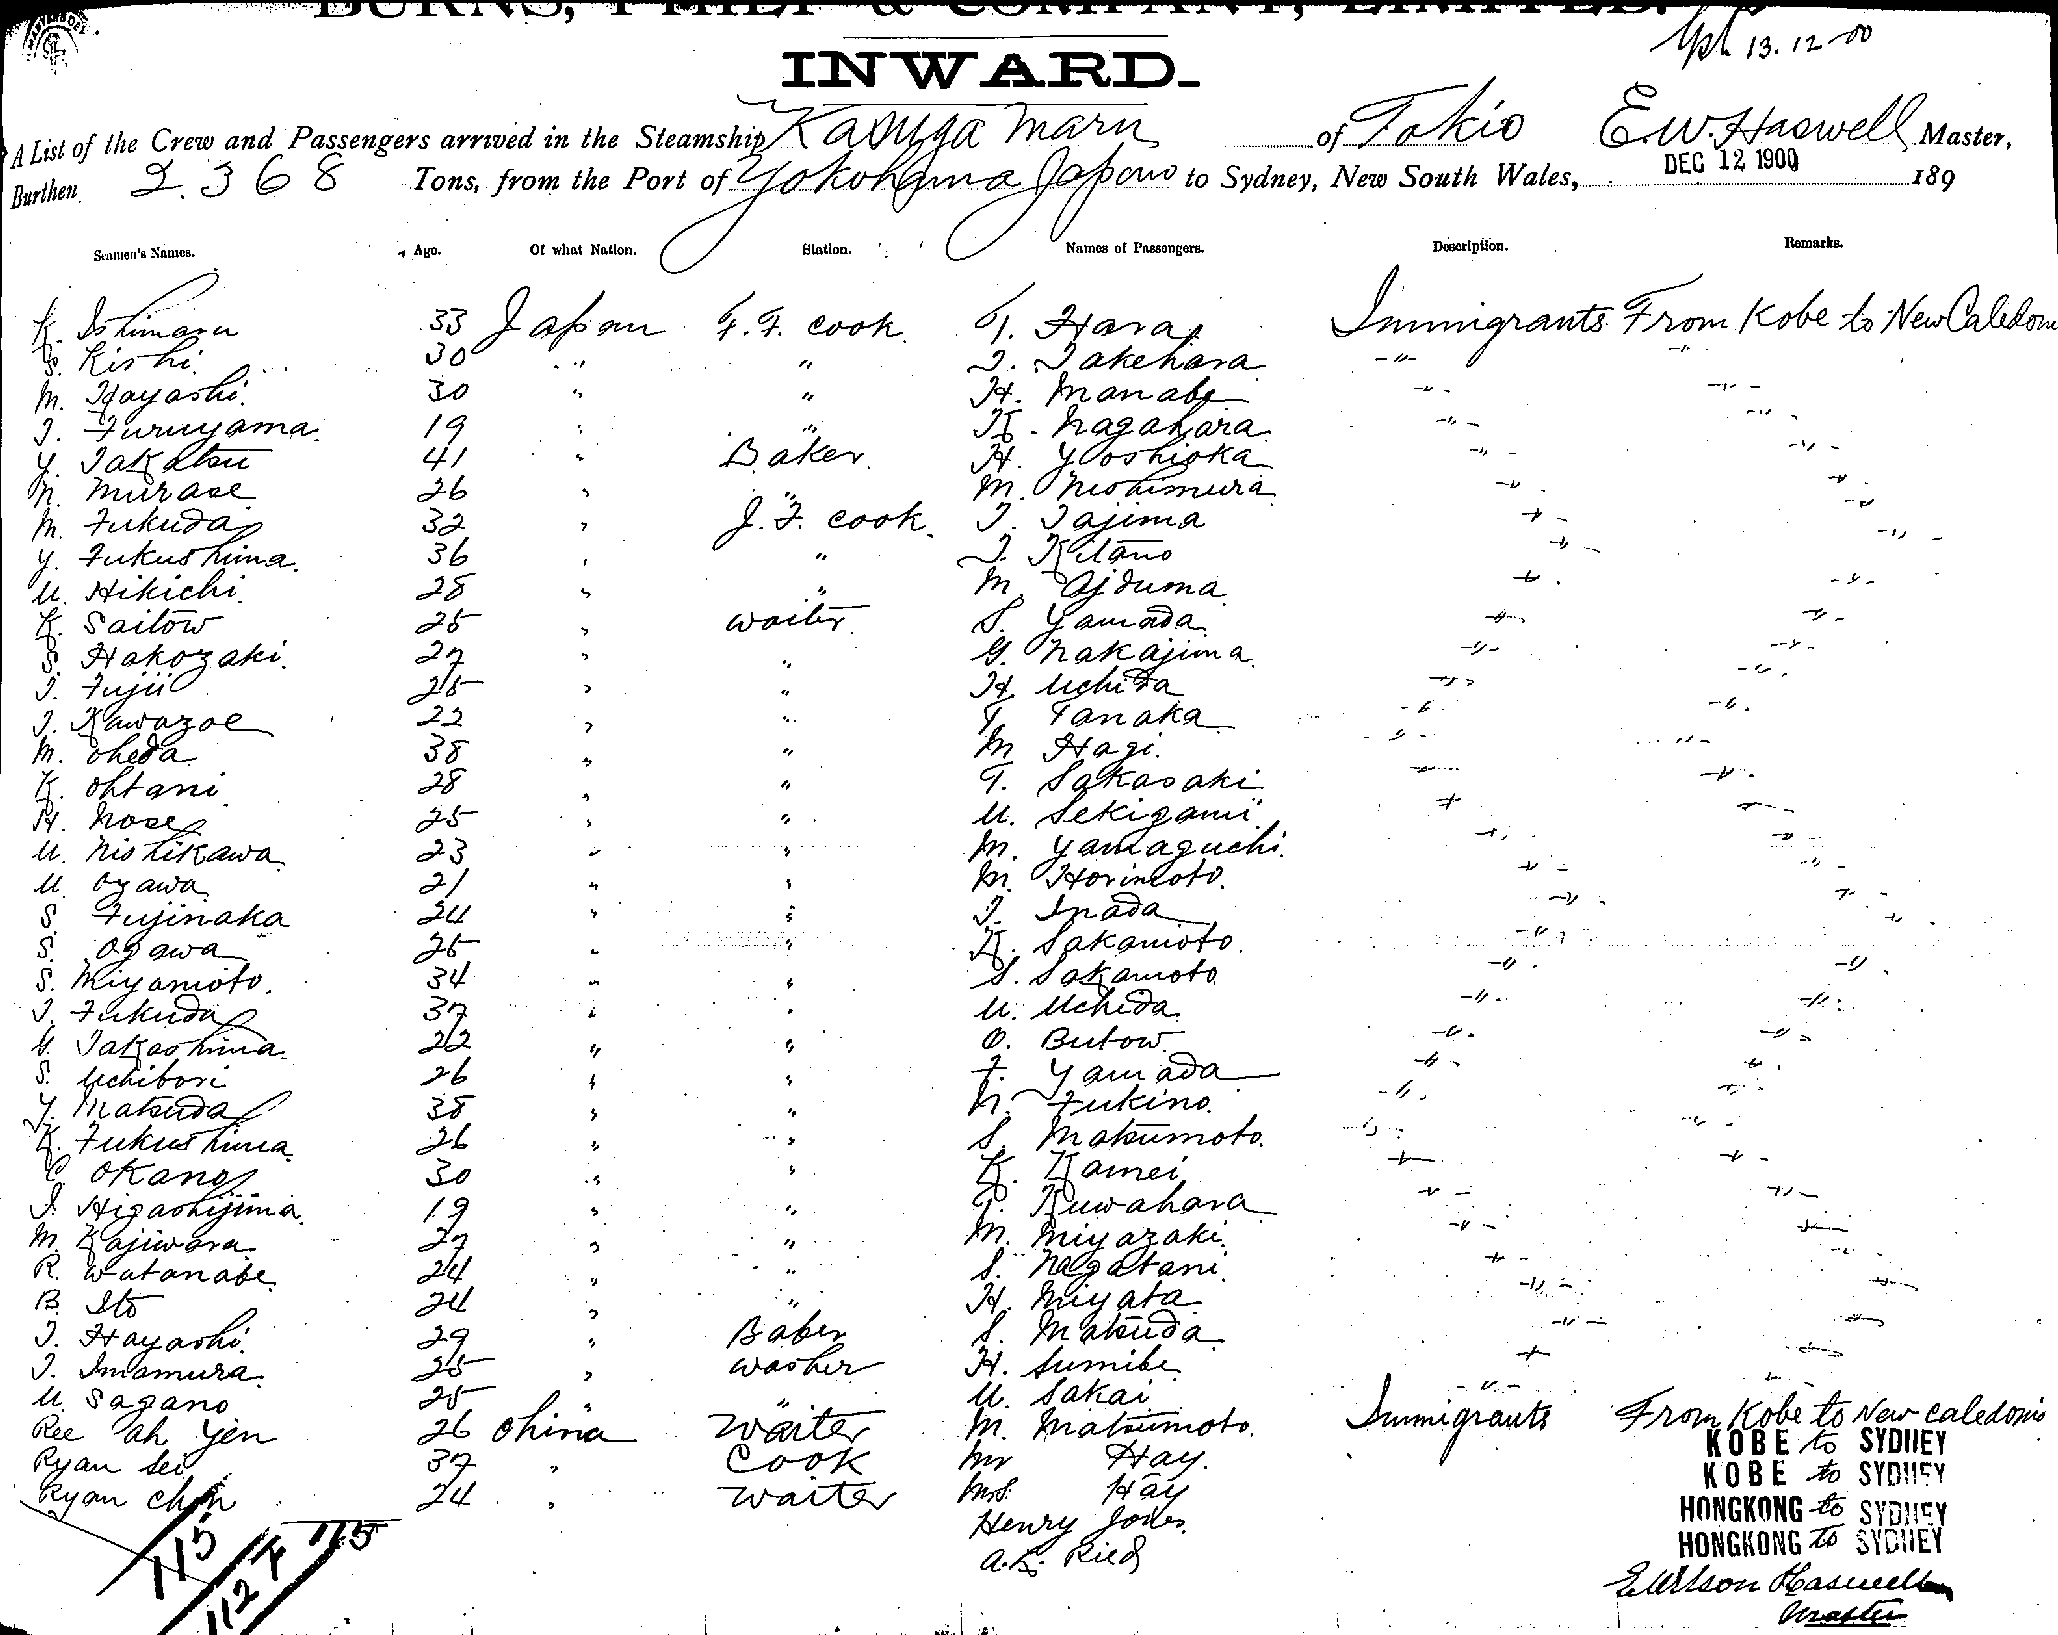 BURNS, PHILP & COMPANY, LIMITED.
13.12.00
INWARD.
A List of the Crew and Passengers arrived in the Steamship Kasuga Maru of Tokio E.W. Haswell Master,
Burthen 2.368 Tons, from the Port of Yokohama Japan to Sydney, New South Wales, DEC 12 1900 189
Seamen's Names. Age. Of what Nation. Station. Names of Passengers. Description. Remarks.
K. Ishimaru 33 Japan F.F. cook. T. Hara Immigrants From Kobe to New Caledon
S. Kishi. 30 " " T. Takehara -"- "
M. Hayashi. 30 " " H. Manabe -"- -"-
T. Furuyama. 19 " " K. Nagahara -"- -"-
Y. Takatsu 41 " Baker. H. Yoshioka -"- -"-
N. Murase 26 " " M. Nishimura -"- -"-
M. Fukuda 32 " J.F. cook. T. Tajima -"- -"-
Y. Fukushima. 36 " " T. Kitano -"- -"-
U. Hikichi. 28 " " M. Ajduma -"- -"-
K. Saitow 25 " waiter. S. Yamada. -"- -"-
S. Hakozaki. 27 " " G. Nakajima. -"- -"-
T. Fujii 25 " " H. Uchida -"- -"-
T. Kawazoe 22 " " T. Tanaka -"- -"-
M. Oheda 38 " " M Hagi. -"- -"-
K. Ohtani 28 " " T. Sakasaki -"- -"-
H. Nose 25 " " U. Sekigami -"- -"-
U. Nishikawa 23 " " M. Yamaguchi. -"- -"-
U. Ozawa 21 " " M. Horimoto. -"- -"-
S. Fujinaka 24 " " T. Inada -"- -"-
S. Ogawa 25 " " K. Sakamoto. -"- -"-
S. Miyamoto. 34 " " S. Sakamoto -"- -"-
T. Fukuda 37 " " U. Uchida. -"- -"-
G. Takashima. 22 " " O. Butow. -"- -"-
S. Uchibori 26 " " F. Yamada -"- -"-
Y. Matsuda 38 " " N. Fukino. -"- -"-
K. Fukushima. 26 " " S. Matsumoto. -"- -"-
C. Okano 30 " " K. Kamei -"- -"-
I. Higashijima. 19 " " T. Kuwahara -"- -"-
M. Kajiwara. 27 " " M. Miyazaki. -"- -"-
R. Watanabe. 24 " " S. Nagatani. -"- -"-
B. Ito 24 " " H. Miyata. -"- -"-
T. Hayashi. 29 " Baber S. Matsuda. -"- -"-
T. Imamura. 25 " washer H. Sumibe. -"- -"-
U. Sagano 25 " " U. Sakai -"- -"-
Ree Ah Yen 26 China Waiter M. Matsumoto. Immigrants From Kobe to New Caledonia
Ryan Sei 37 " Cook Mr Hay. KOBE to SYDNEY
Ryan Chin 24 " Waiter Mrs. Hay KOBE to SYDNEY
Henry Jones. HONGKONG to SYDNEY
A.K. Ried HONGKONG to SYDNEY
115
112 F 115
E Wilson Haswell
Master